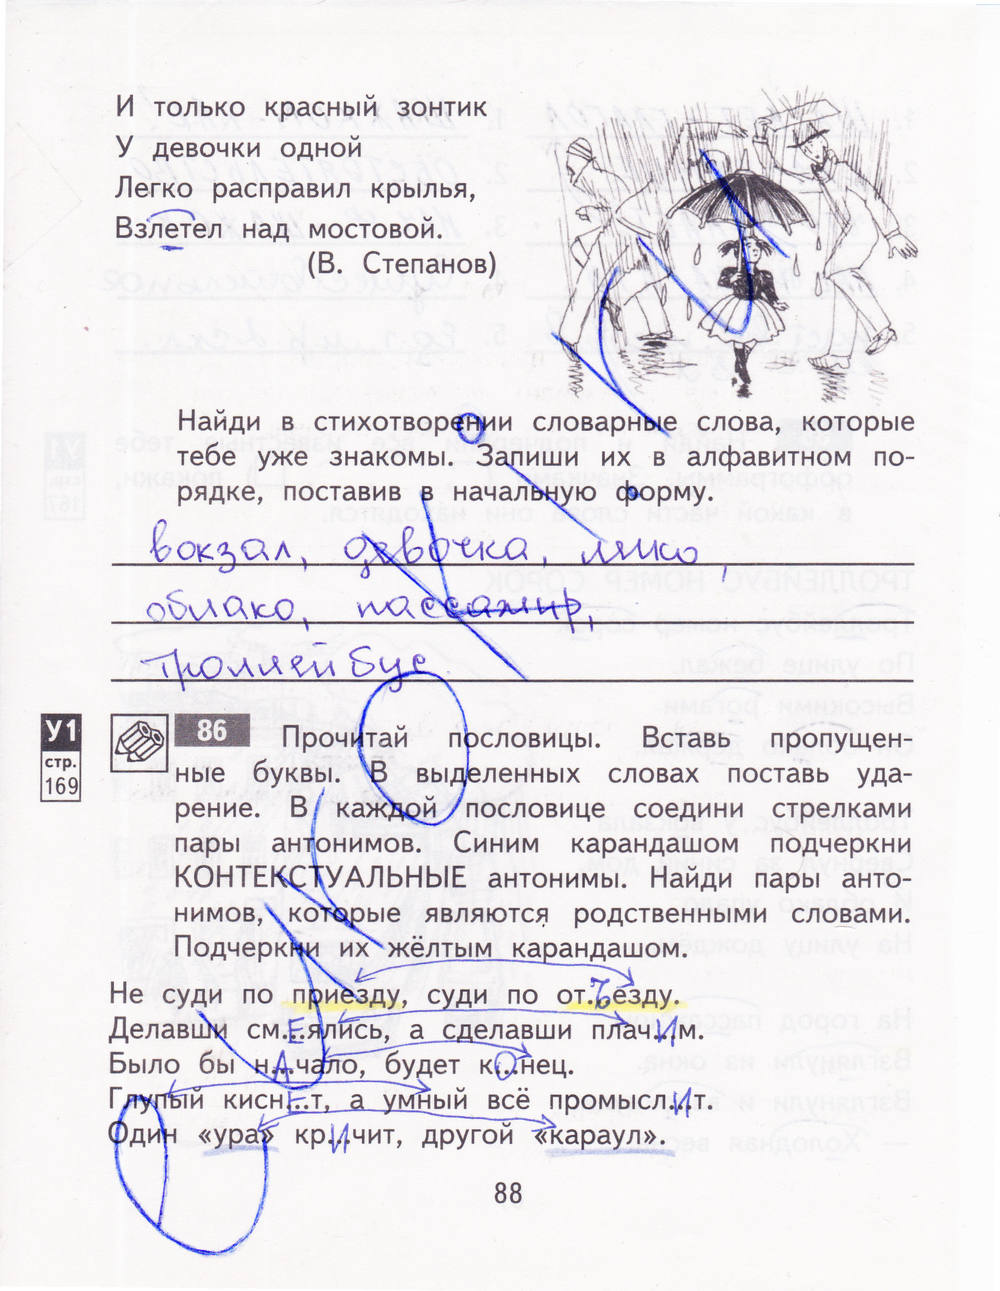 И только красный зонтик
У девочки одной
Легко расправил крылья,
Взлетел над мостовой.
(В. Степанов)
Найди в стихотворении словарные слова, которые
тебе уже знакомы. Запиши их в алфавитном по-
рядке, поставив в начальную форму.
вокзал, девочка, легко,
облако, пассажир,
троллейбус
У1
стр.
169
86
Прочитай пословицы. Вставь пропущен-
ные буквы. В выделенных словах поставь уда-
рение. В каждой пословице соедини стрелками
пары антонимов. Синим карандашом подчеркни
КОНТЕКСТУАЛЬНЫЕ антонимы. Найди пары анто-
нимов, которые являются родственными словами.
Подчеркни их жёлтым карандашом.
Не суди по приезду, суди по от.Ъ.езду.
Делавши см.Е.ялись, а сделавши плач.И.м.
Было бы н.А.чало, будет к.О.нец.
Глупый кисн.Е.т, а умный всё промысл.И.т.
Один «ура» кр.И.чит, другой «караул».
88